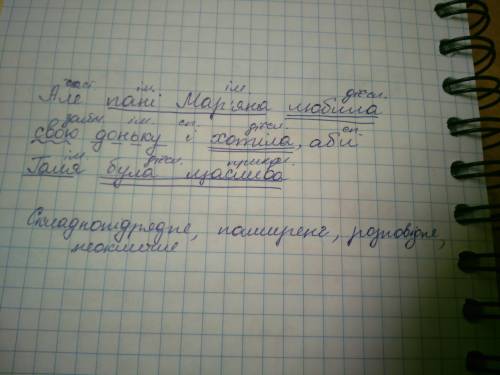 част. ім. ім. дієсл.
Але пані Мар'яна любила
займ. ім. сп. дієсл. сп.
свою доньку і хотіла, аби
ім. дієсл. прикм.
Галя була щаслива
Складнопідрядне, поширене, розповідне,
неоклична